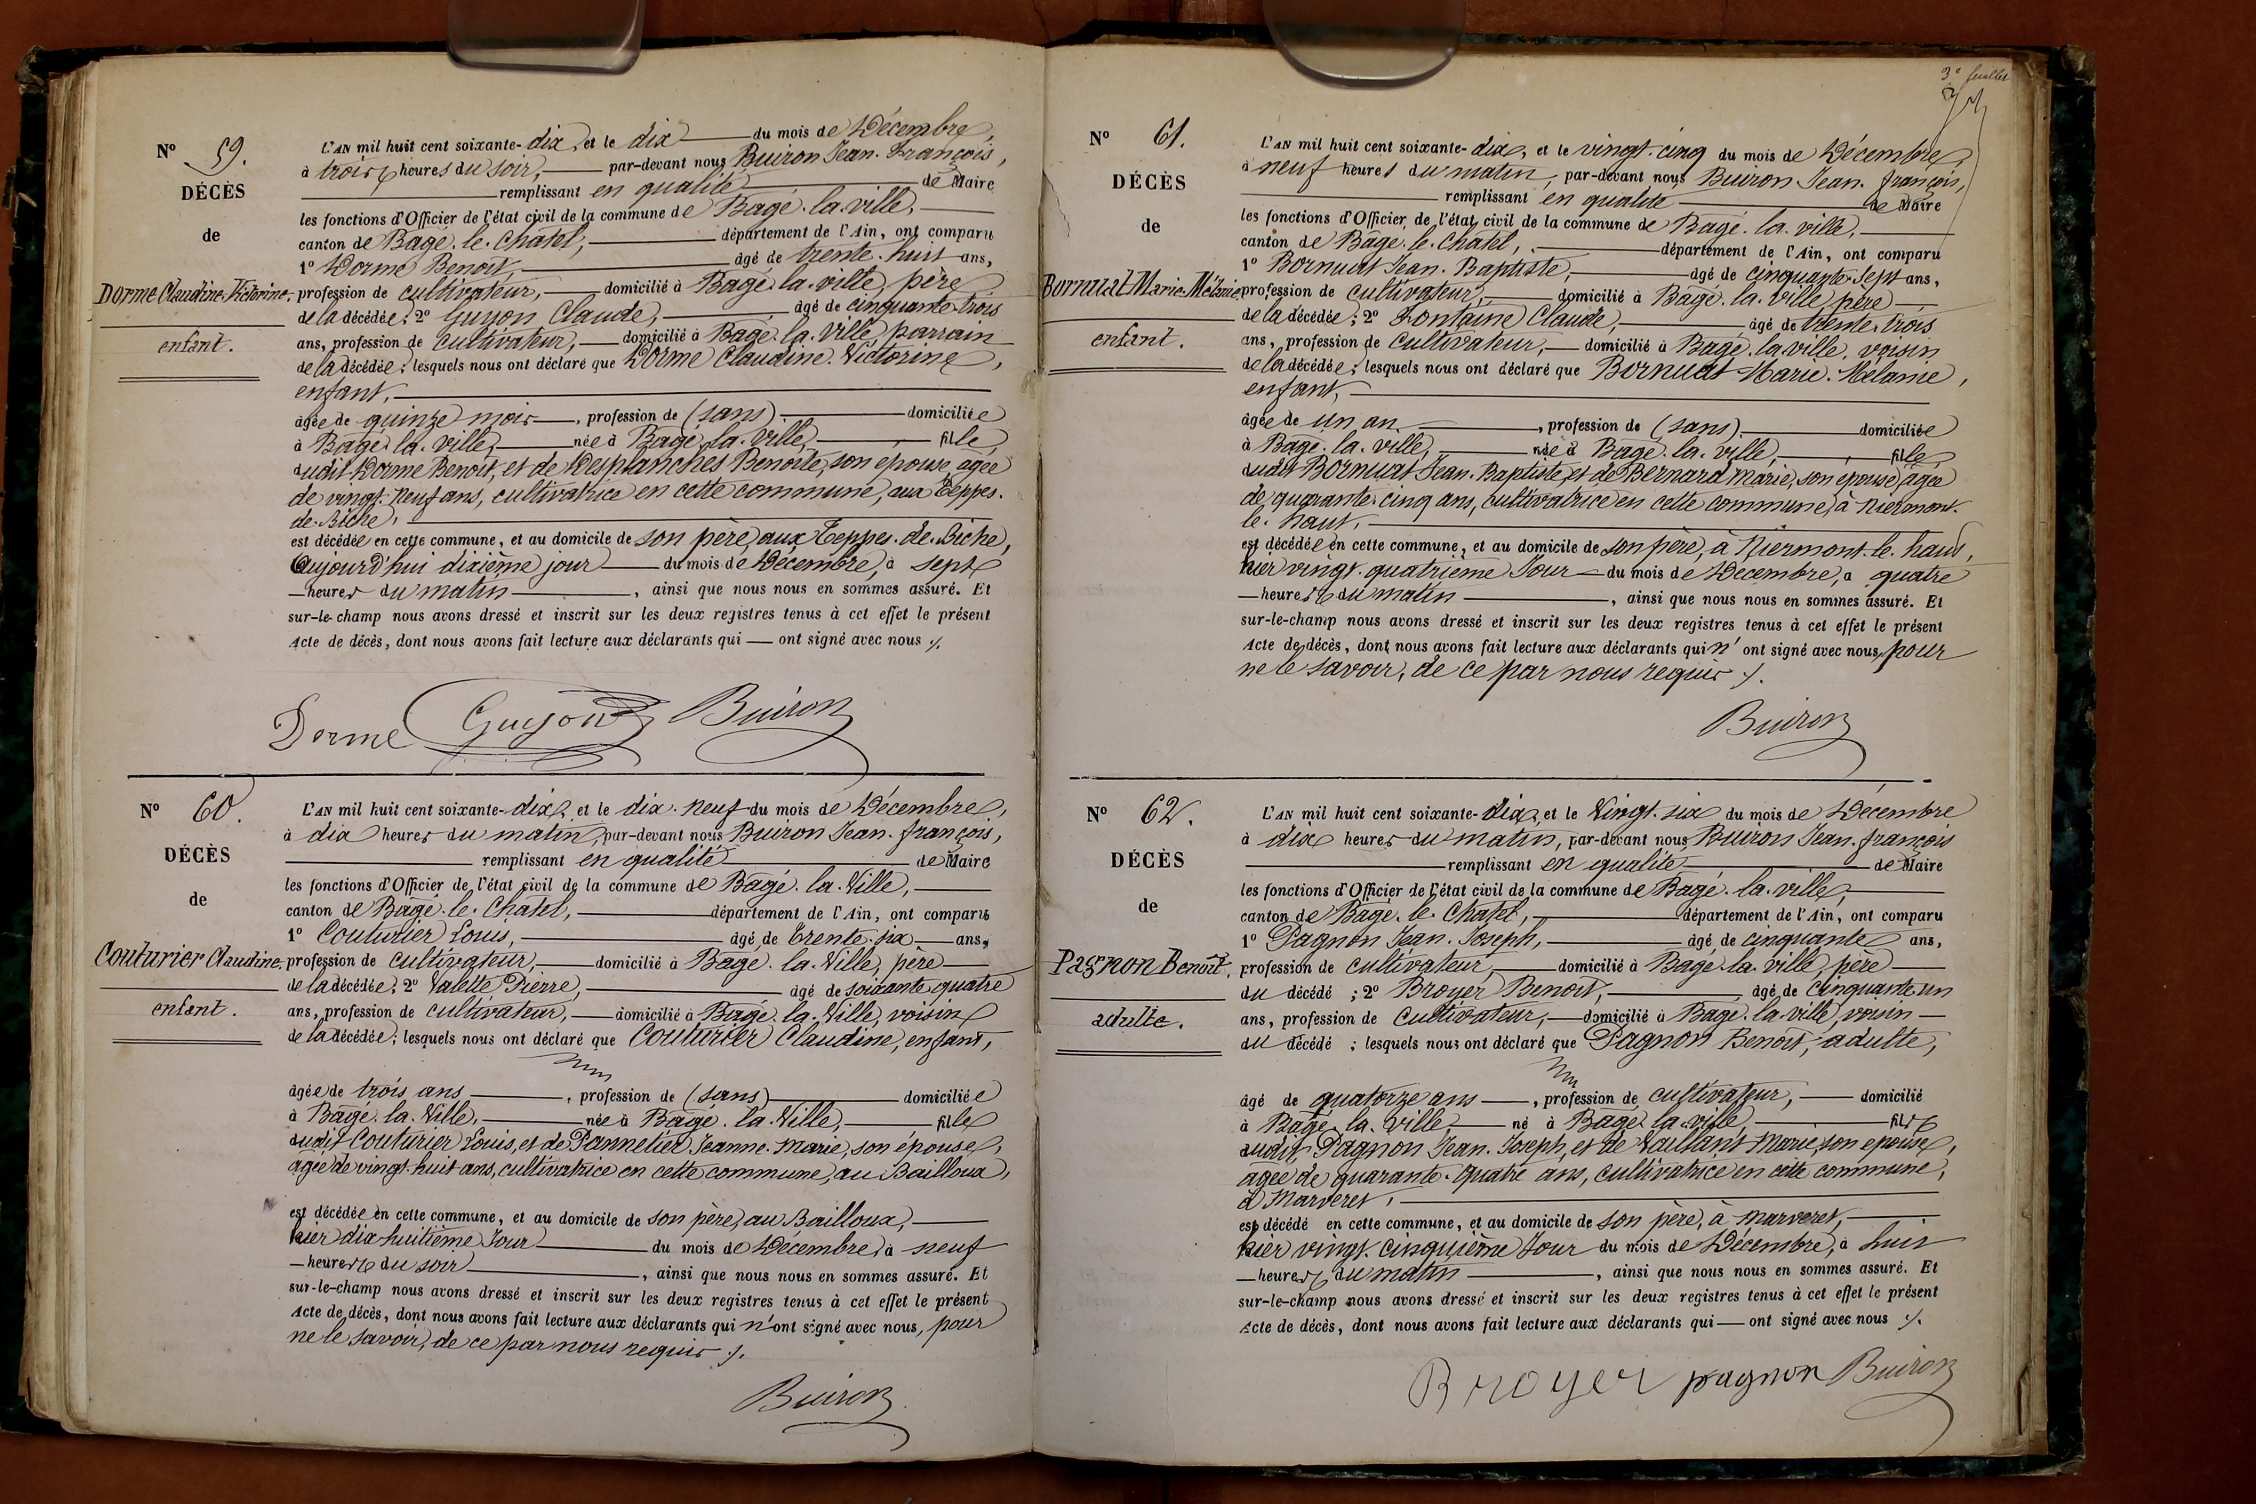 Nº 59.
DÉCÈS
de
Dorme Claudine-Victorine.
enfant.
L'AN mil huit cent soixante-dix, et le dix du mois de Décembre,
à trois heures du soir, par-devant nous Buiron Jean-François,
remplissant en qualité de Maire
les fonctions d'Officier de l'état civil de la commune de Bagé-la-ville,
canton de Bagé-le-Châtel, département de l'Ain, ont comparu
1º Dorme Benoit, âgé de trente-huit ans,
profession de cultivateur, domicilié à Bagé-la-ville, père
de la décédée; 2º Guyon Claude, âgé de cinquante-trois
ans, profession de cultivateur, domicilié à Bagé-la-ville, parrain
de la décédée; lesquels nous ont déclaré que Dorme Claudine-Victorine,
enfant,
âgée de quinze mois, profession de (sans) domiciliée
à Bagé-la-ville, née à Bagé-la-ville, fille
dudit Dorme Benoit, et de Desplanches Benoîte, son épouse, âgée
de vingt-neuf ans, cultivatrice en cette commune, aux Teppes-
de-Biche,
est décédée en cette commune, et au domicile de son père, aux Teppes-de-Biche,
aujourd'hui dixième jour du mois de Décembre, à sept
heures du matin, ainsi que nous nous en sommes assuré. Et
sur-le-champ nous avons dressé et inscrit sur les deux registres tenus à cet effet le présent
Acte de décès, dont nous avons fait lecture aux déclarants qui ont signé avec nous ./.
Dorme Guyon Buiron
Nº 60.
DÉCÈS
de
Couturier Claudine.
enfant.
L'AN mil huit cent soixante-dix, et le dix-neuf du mois de Décembre,
à dix heures du matin, par-devant nous Buiron Jean-françois,
remplissant en qualité de Maire
les fonctions d'Officier de l'état civil de la commune de Bagé-la-Ville,
canton de Bagé-le-Châtel, département de l'Ain, ont comparu
1º Couturier Louis, âgé de trente-six ans,
profession de cultivateur, domicilié à Bagé-la-Ville, père
de la décédée; 2º Valette Pierre, âgé de soixante-quatre
ans, profession de cultivateur, domicilié à Bagé-la-Ville, voisin
de la décédée; lesquels nous ont déclaré que Couturier Claudine, enfant,
âgée de trois ans, profession de (sans) domiciliée
à Bagé-la-Ville, née à Bagé-la-Ville, fille
dudit Couturier Louis, et de Pannetier Jeanne-Marie, son épouse,
âgée de vingt-huit ans, cultivatrice en cette commune, au Bailloux,
est décédée en cette commune, et au domicile de son père, au Bailloux,
hier dix-huitième Jour du mois de Décembre, à neuf
heures du soir, ainsi que nous nous en sommes assuré. Et
sur-le-champ nous avons dressé et inscrit sur les deux registres tenus à cet effet le présent
Acte de décès, dont nous avons fait lecture aux déclarants qui n'ont signé avec nous, pour
ne le savoir, de ce par nous requis ./.
Buiron
3e feuillet
Nº 61.
DÉCÈS
de
Bornuat Marie-Mélanie
enfant.
L'AN mil huit cent soixante-dix, et le vingt-cinq du mois de Décembre,
à neuf heures du matin, par-devant nous Buiron Jean-françois,
remplissant en qualité de Maire
les fonctions d'Officier de l'état civil de la commune de Bagé-la-ville,
canton de Bâgé-le-Châtel, département de l'Ain, ont comparu
1º Bornuat Jean-Baptiste, âgé de cinquante-sept ans,
profession de cultivateur, domicilié à Bagé-la-ville, père
de la décédée; 2º Fontaine Claude, âgé de trente-trois
ans, profession de cultivateur, domicilié à Bagé-la-ville, voisin
de la décédée; lesquels nous ont déclaré que Bornuat Marie-Mélanie,
enfant,
âgée de un an, profession de (sans) domiciliée
à Bagé-la-ville, née à Bagé-la-ville, fille
dudit Bornuat Jean-Baptiste, et de Bernard Marie, son épouse, âgée
de quarante-cinq ans, cultivatrice en cette commune, à Niermont-
le-haut,
est décédée en cette commune, et au domicile de son père, à Niermont-le-haut,
hier vingt-quatrième Jour du mois de Décembre, à quatre
heures du matin, ainsi que nous nous en sommes assuré. Et
sur-le-champ nous avons dressé et inscrit sur les deux registres tenus à cet effet le présent
Acte de décès, dont nous avons fait lecture aux déclarants qui n'ont signé avec nous, pour
ne le savoir, de ce par nous requis ./.
Buiron
Nº 62.
DÉCÈS
de
Pagnon Benoît.
adulte.
L'AN mil huit cent soixante-dix, et le Vingt-six du mois de Décembre
à dix heures du matin, par-devant nous Buiron Jean-françois
remplissant en qualité de Maire
les fonctions d'Officier de l'état civil de la commune de Bagé-la-ville,
canton de Bagé-le-Châtel, département de l'Ain, ont comparu
1º Pagnon Jean-Joseph, âgé de cinquante ans,
profession de cultivateur, domicilié à Bagé-la-ville, père
du décédé; 2º Broyer Benoit, âgé de cinquante-un
ans, profession de Cultivateur, domicilié à Bagé-la-ville, voisin
du décédé; lesquels nous ont déclaré que Pagnon Benoît, adulte,
âgé de quatorze ans, profession de cultivateur, domicilié
à Bagé-la-ville, né à Bagé-la-ville, fils
dudit Pagnon Jean-Joseph, et de Vaillant Marie, son épouse,
âgée de quarante-quatre ans, cultivatrice en cette commune,
à Marveret,
est décédé en cette commune, et au domicile de son père, à Marveret,
hier vingt-cinquième Jour du mois de Décembre, à huit
heures du matin, ainsi que nous nous en sommes assuré. Et
sur-le-champ nous avons dressé et inscrit sur les deux registres tenus à cet effet le présent
Acte de décès, dont nous avons fait lecture aux déclarants qui ont signé avec nous ./.
Broyer pagnon Buiron